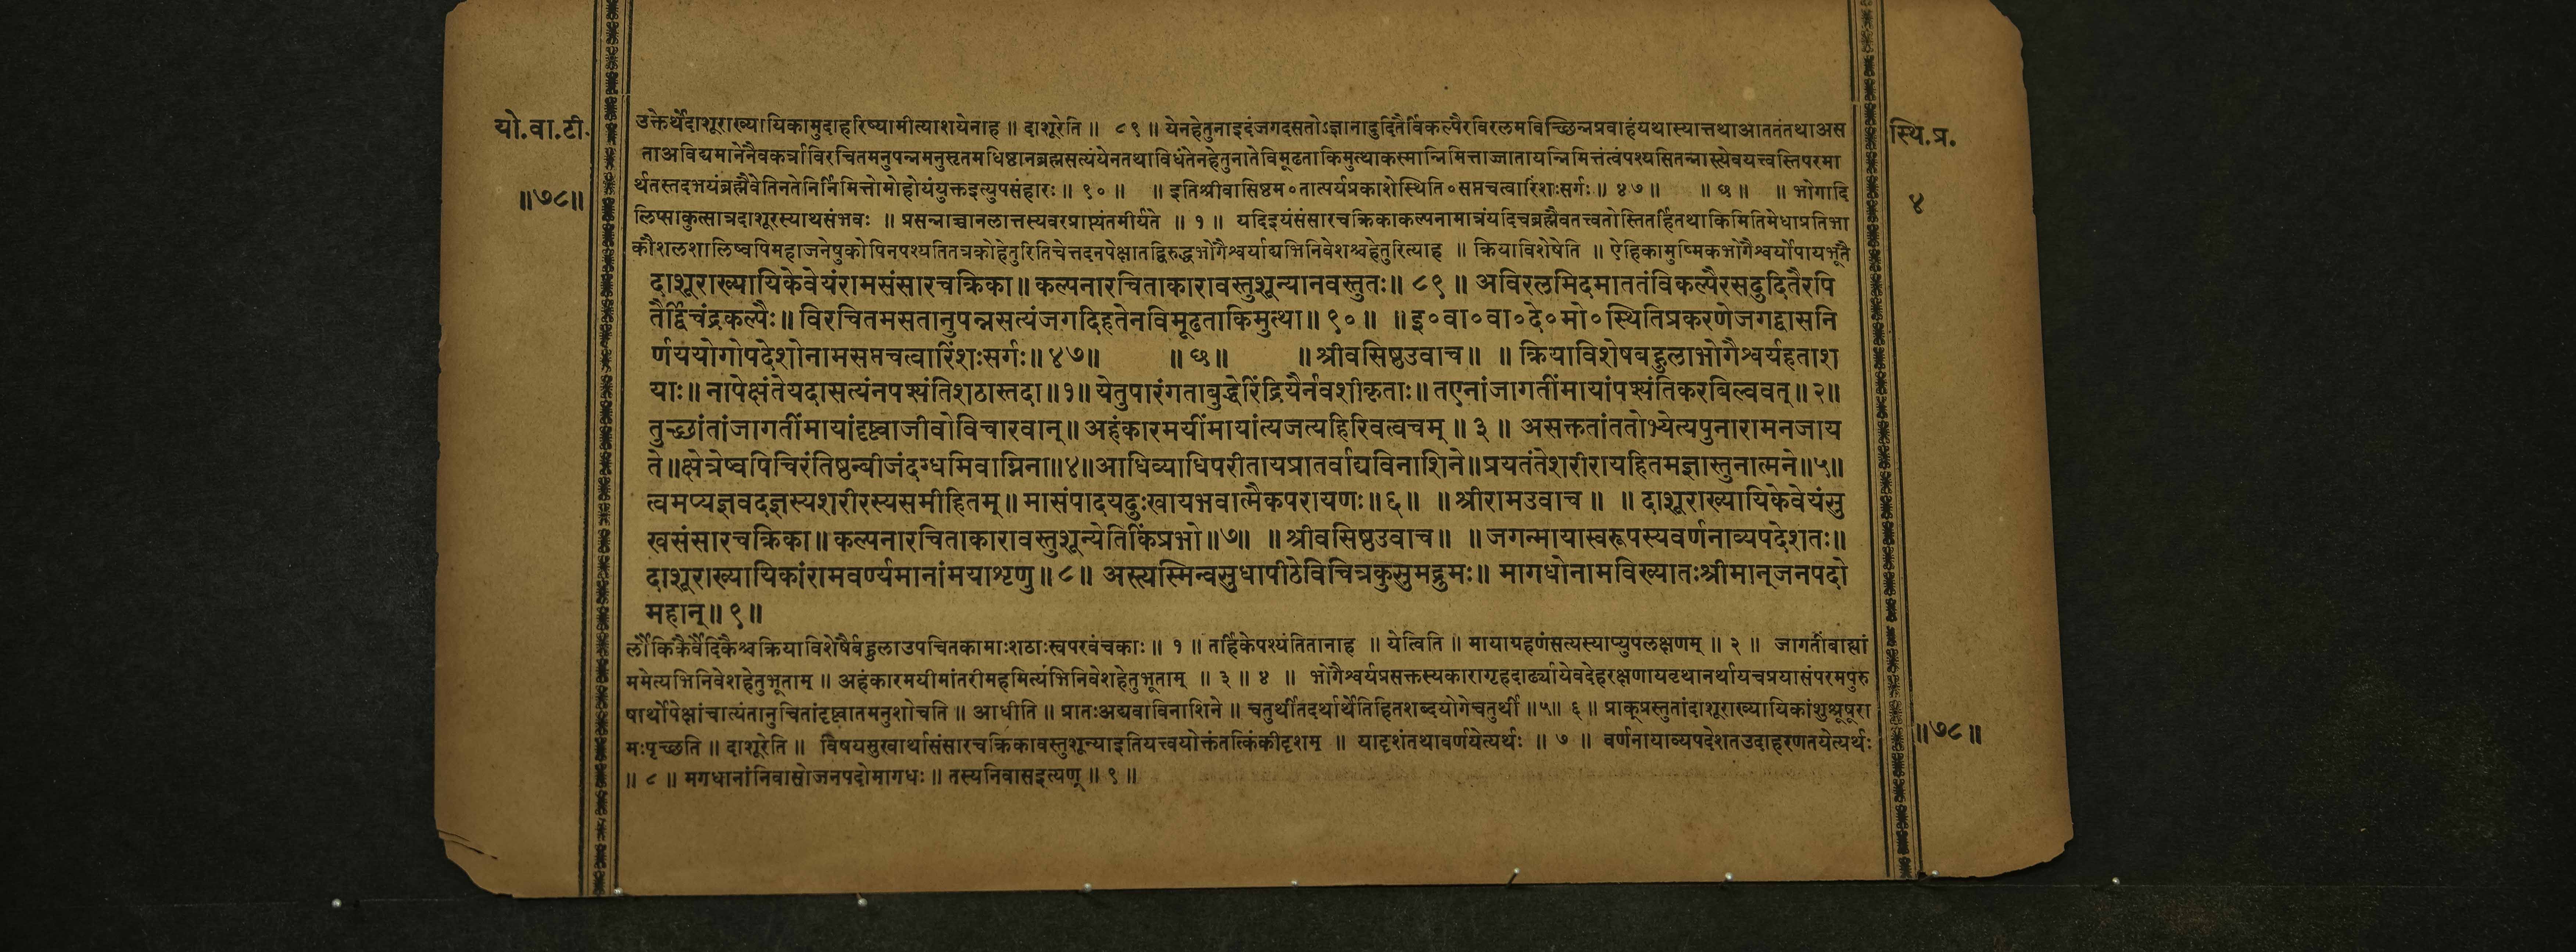 यो.वा.टी.
॥७८॥
स्थि.प्र.
४
उक्तेर्थेदाशूराख्यायिकामुदाहरिष्यामीत्याशयेनाह ॥ दाशूरेति ॥ ८९ ॥ येनहेतुनाइदंजगदसतोऽज्ञानादुदितैर्विकल्पैरविरलमविच्छिन्नप्रवाहंयथास्यात्तथाआततंतथाअस
ताअविद्यमानेनैवकर्त्राविरचितमनुपन्नमनुसृतमधिष्ठानब्रह्मसत्यंयेनतथाविधंतेनहेतुनातेविमूढताकिमुत्थाकस्मान्निमित्ताज्जातायन्निमित्तंत्वंपश्यसितन्नास्त्येवयत्त्वस्तिपरमा
र्थतस्तदभयंब्रह्मैवेतिनतेनिर्निमित्तोमोहोयंयुक्तइत्युपसंहारः ॥ ९० ॥ ॥ इतिश्रीवासिष्ठम०तात्पर्यप्रकाशेस्थिति०सप्तचत्वारिंशःसर्गः ॥ ४७ ॥ ॥ छ ॥ ॥ भोगादि
लिप्साकुत्सात्रदाशूरस्याथसंभवः ॥ प्रसन्नाच्चानलात्तस्यवरप्राप्त्यंतमीर्यते ॥ १ ॥ यदिइयंसंसारचक्रिकाकल्पनामात्रंयदिचब्रह्मैवतत्त्वतोस्तितर्हितथाकिमितिमेधाप्रतिभा
कौशलशालिष्वपिमहाजनेषुकोपिनपश्यतितत्रकोहेतुरितिचेत्तदनपेक्षातद्विरुद्धभोगैश्वर्याद्यभिनिवेशश्चहेतुरित्याह ॥ क्रियाविशेषेति ॥ ऐहिकामुष्मिकभोगैश्वर्योपायभूतै
दाशूराख्यायिकेवेयंरामसंसारचक्रिका॥ कल्पनारचिताकारावस्तुशून्यानवस्तुतः॥ ८९ ॥ अविरलमिदमाततंविकल्पैरसदुदितैरपि
तैर्द्विचंद्रकल्पैः॥ विरचितमसतानुपन्नसत्यंजगदिहतेनविमूढताकिमुत्था॥ ९० ॥ ॥ इ०वा०वा०दे०मो०स्थितिप्रकरणेजगद्वासनि
र्णययोगोपदेशोनामसप्तचत्वारिंशःसर्गः॥ ४७॥ ॥ छ॥ ॥ श्रीवसिष्ठउवाच॥ ॥ क्रियाविशेषबहुलाभोगैश्वर्यहताश
याः॥ नापेक्षंतेयदासत्यंनपश्यंतिशठास्तदा॥१॥ येतुपारंगताबुद्धेरिंद्रियैर्नवशीकृताः॥ तएनांजागतींमायांपश्यंतिकरबिल्ववत्॥ २॥
तुच्छांतांजागतींमायांदृष्ट्वाजीवोविचारवान्॥ अहंकारमयींमायांत्यजत्यहिरिवत्वचम् ॥ ३ ॥ असक्ततांततोभ्येत्यपुनारामनजाय
ते॥क्षेत्रेष्वपिचिरंतिष्ठन्बीजंदग्धमिवाग्निना॥४॥आधिव्याधिपरीतायप्रातर्वाद्यविनाशिने॥प्रयतंतेशरीरायहितमज्ञास्तुनात्मने॥५॥
त्वमप्यज्ञवदज्ञस्यशरीरस्यसमीहितम्॥ मासंपादयदुःखायभवात्मैकपरायणः॥६॥ ॥ श्रीरामउवाच॥ ॥ दाशूराख्यायिकेवेयंसु
खसंसारचक्रिका॥ कल्पनारचिताकारावस्तुशून्येतिकिंप्रभो॥७॥ ॥ श्रीवसिष्ठउवाच॥ ॥ जगन्मायास्वरूपस्यवर्णनाव्यपदेशतः॥
दाशूराख्यायिकांरामवर्ण्यमानांमयाशृणु॥ ८॥ अस्त्यस्मिन्वसुधापीठेविचित्रकुसुमद्रुमः॥ मागधोनामविख्यातःश्रीमान्जनपदो
महान्॥ ९॥
र्लौकिकैर्वैदिकैश्चक्रियाविशेषैर्बहुलाउपचितकामाःशठाःस्वपरवंचकाः ॥ १ ॥ तर्हिकेपश्यंतितानाह ॥ येत्विति ॥ मायाग्रहणंसत्यस्याप्युपलक्षणम् ॥ २ ॥ जागतींबाह्यां
ममेत्यभिनिवेशहेतुभूताम् ॥ अहंकारमयीमांतरीमहमित्यभिनिवेशहेतुभूताम् ॥ ३ ॥ ४ ॥ भोगैश्वर्यप्रसक्तस्यकारागृहदार्ढ्यायेवदेहरक्षणायवृथानर्थायचप्रयासंपरमपुरु
षार्थोपेक्षांचात्यंतानुचितांदृष्ट्वातमनुशोचति ॥ आधीति ॥ प्रातःअद्यवाविनाशिने ॥ चतुर्थीतदर्थार्थेतिहितशब्दयोगेचतुर्थी ॥५॥ ६ ॥ प्राक्प्रस्तुतांदाशूराख्यायिकांशुश्रूषूरा
मःपृच्छति ॥ दाशूरेति ॥ विषयसुखार्थासंसारचक्रिकावस्तुशून्याइतियत्त्वयोक्तंतत्किंकीदृशम् ॥ यादृशंतथावर्णयेत्यर्थः ॥ ७ ॥ वर्णनायाव्यपदेशतउदाहरणतयेत्यर्थः
॥ ८ ॥ मगधानांनिवासोजनपदोमागधः ॥ तस्यनिवासइत्यण् ॥ ९ ॥
॥७८॥